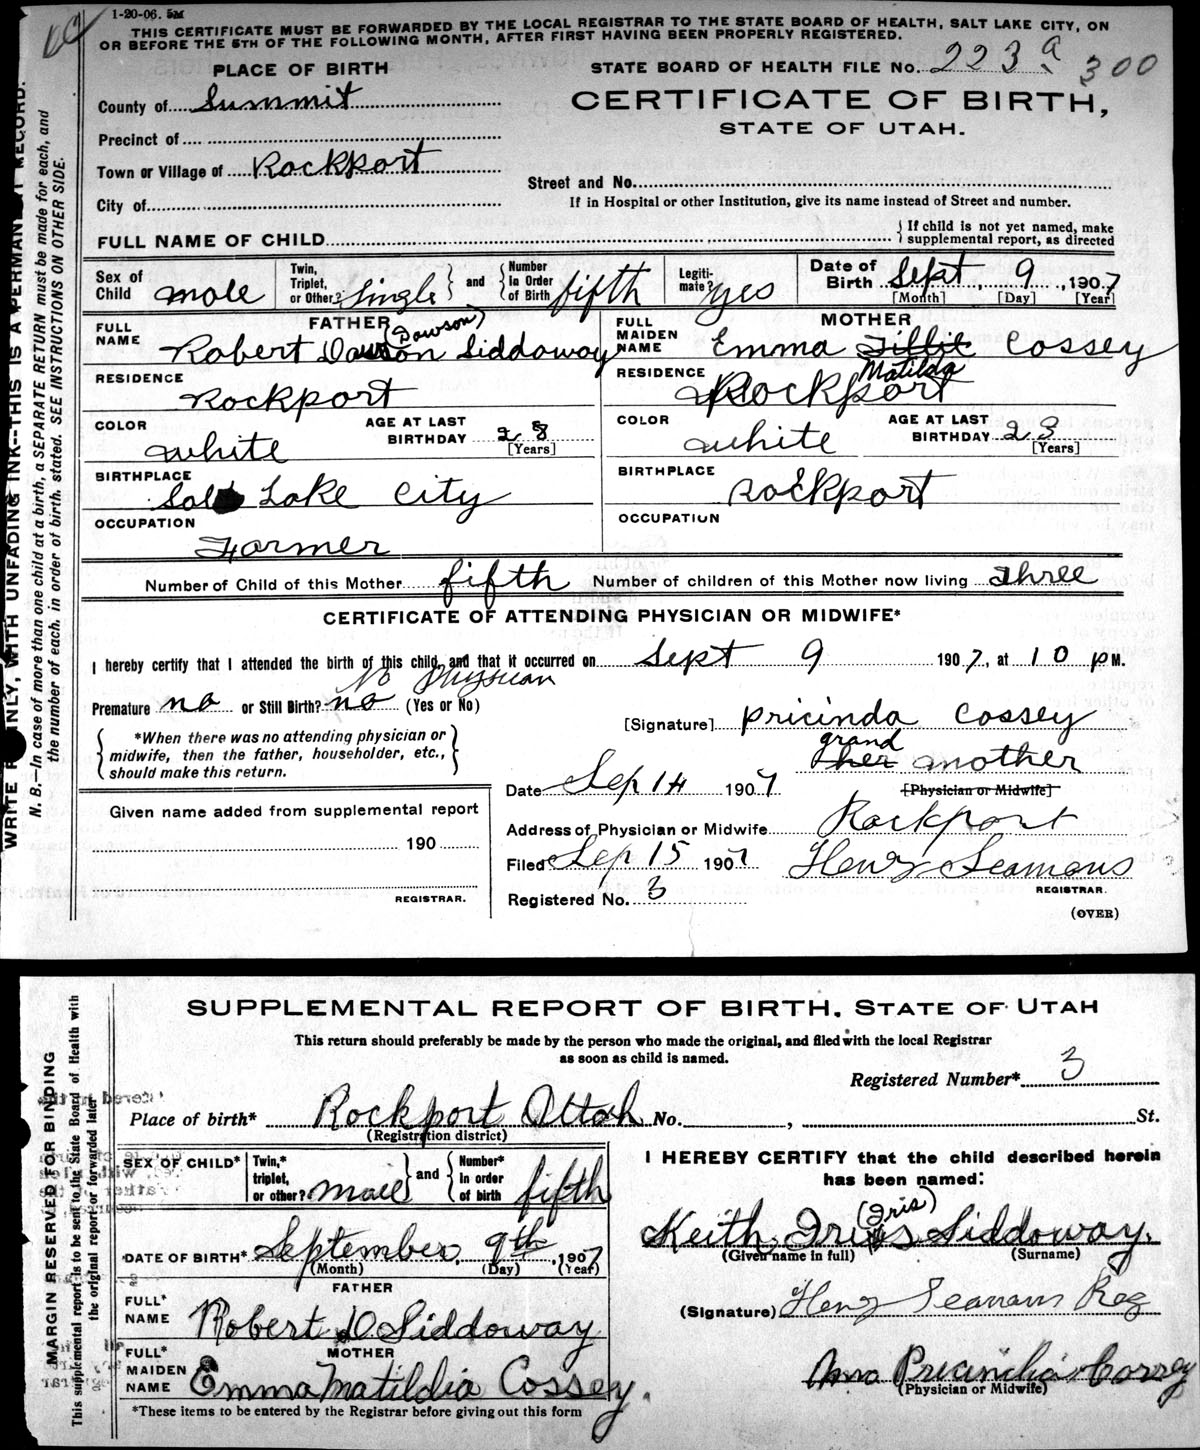 1-20-06. 5M
THIS CERTIFICATE MUST BE FORWARDED BY THE LOCAL REGISTRAR TO THE STATE BOARD OF HEALTH, SALT LAKE CITY, ON
OR BEFORE THE 5TH OF THE FOLLOWING MONTH, AFTER FIRST HAVING BEEN PROPERLY REGISTERED.
PLACE OF BIRTH
STATE BOARD OF HEALTH FILE No. 223 a 300
County of Summit
CERTIFICATE OF BIRTH,
STATE OF UTAH.
Precinct of
Town or Village of Rockport
Street and No.
City of
If in Hospital or other Institution, give its name instead of Street and number.
FULL NAME OF CHILD
If child is not yet named, make
supplemental report, as directed
Sex of Child male
Twin, Triplet, or Other? Single
and
Number In Order of Birth fifth
Legiti-mate? yes
Date of Birth Sept 9, 1907
[Month] [Day] [Year]
FATHER
FULL NAME
(Dawson)
Robert Dawson Siddoway
MOTHER
FULL MAIDEN NAME
Emma Tillit Cossey
Matilda
RESIDENCE
Rockport
RESIDENCE
Rockport
COLOR
white
AGE AT LAST BIRTHDAY 28
[Years]
COLOR
white
AGE AT LAST BIRTHDAY 23
[Years]
BIRTHPLACE
Salt Lake City
BIRTHPLACE
Rockport
OCCUPATION
Farmer
OCCUPATION
Number of Child of this Mother fifth Number of children of this Mother now living three
CERTIFICATE OF ATTENDING PHYSICIAN OR MIDWIFE*
I hereby certify that I attended the birth of this child, and that it occurred on Sept 9 1907, at 10 P M.
No Physician
Premature no or Still Birth? no (Yes or No)
[Signature] Pricinda Cossey
*When there was no attending physician or
midwife, then the father, householder, etc.,
should make this return.
grand
her mother
[Physician or Midwife]
Date Sep 14 1907
Given name added from supplemental report
190
REGISTRAR.
Address of Physician or Midwife Rockport
Filed Sep 15 1907 Henry Seamons
REGISTRAR.
Registered No. 3
(OVER)
WRITE PLAINLY, WITH UNFADING INK--THIS IS A PERMANENT RECORD.
N. B.—In case of more than one child at a birth, a SEPARATE RETURN must be made for each, and
the number of each, in order of birth, stated. SEE INSTRUCTIONS ON OTHER SIDE.
SUPPLEMENTAL REPORT OF BIRTH, STATE OF UTAH
This return should preferably be made by the person who made the original, and filed with the local Registrar
as soon as child is named.
Registered Number* 3
Place of birth* Rockport Uttah No. , St.
(Registration district)
SEX OF CHILD*
Twin,* triplet, or other? male
and
Number* in order of birth fifth
I HEREBY CERTIFY that the child described herein
has been named:
(Iris)
Keith Siddoway.
(Given name in full) (Surname)
DATE OF BIRTH* September, 9th, 1907
(Month) (Day) (Year)
FATHER
FULL* NAME
Robert D. Siddoway
(Signature) Henry Seamons Reg
MOTHER
FULL* MAIDEN NAME
Emma Matildia Cossey.
(Physician or Midwife)
*These items to be entered by the Registrar before giving out this form
MARGIN RESERVED FOR BINDING
This supplemental report is to be sent to the State Board of Health with
the original report or forwarded later